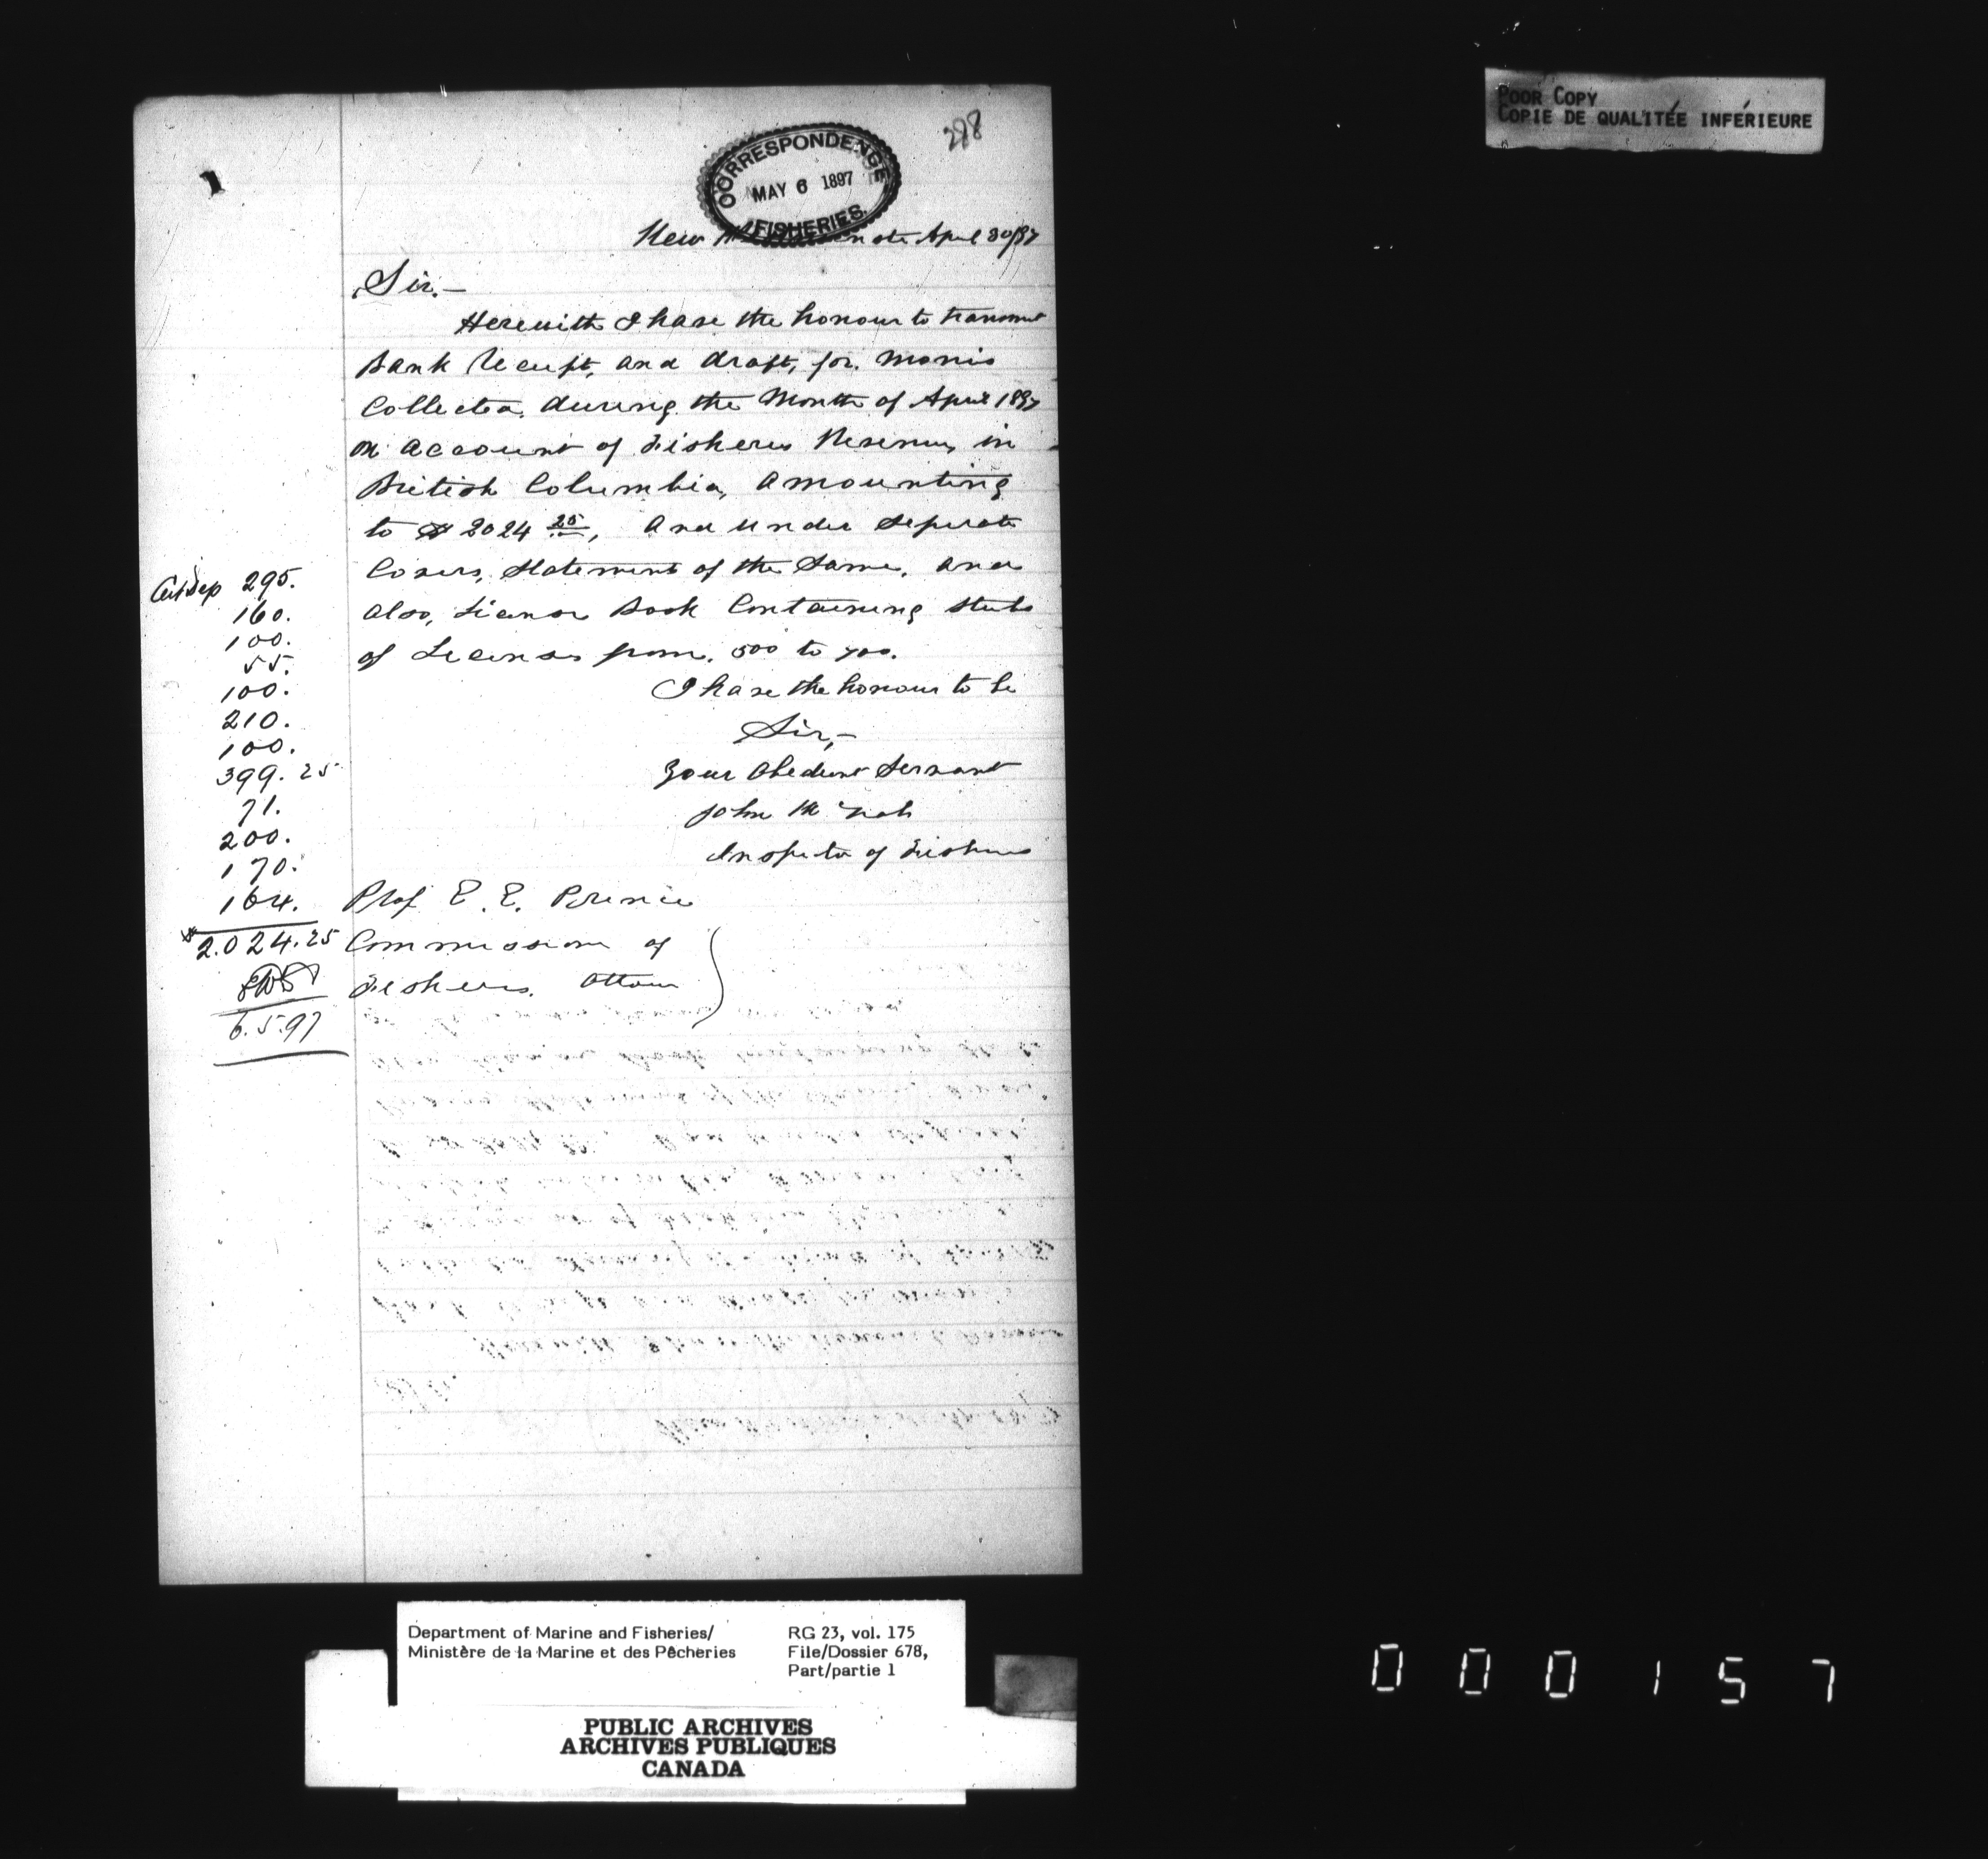 POOR COPY
COPIE DE QUALITÉE INFÉRIEURE
298
CORRESPONDENCE
MAY 6 1897
FISHERIES
New April 30/97
Sir,—
Herewith I have the honour to transmit
Bank Receipt, and draft, for monies
Collected, during the Month of April 1897
on account of Fisheries Revenue, in
British Columbia, amounting
to $ 2024 25, and under Seperate
Covers, Statement of the Same, and
also, License Book Containing stubs
of Licenses from. 500 to 700.
I have the honour to be
Sir,—
Your Obedient Servant
John McNab
Inspector of Fisheries
Prof E. E. Prince
Commissioner of
Fisheries. Ottawa
295.
160.
100.
55.
100.
210.
100.
399.25
71.
200.
170.
164.
$2.024.25
6.5.97
Department of Marine and Fisheries/
Ministère de la Marine et des Pêcheries
RG 23, vol. 175
File/Dossier 678,
Part/partie 1
PUBLIC ARCHIVES
ARCHIVES PUBLIQUES
CANADA
000157